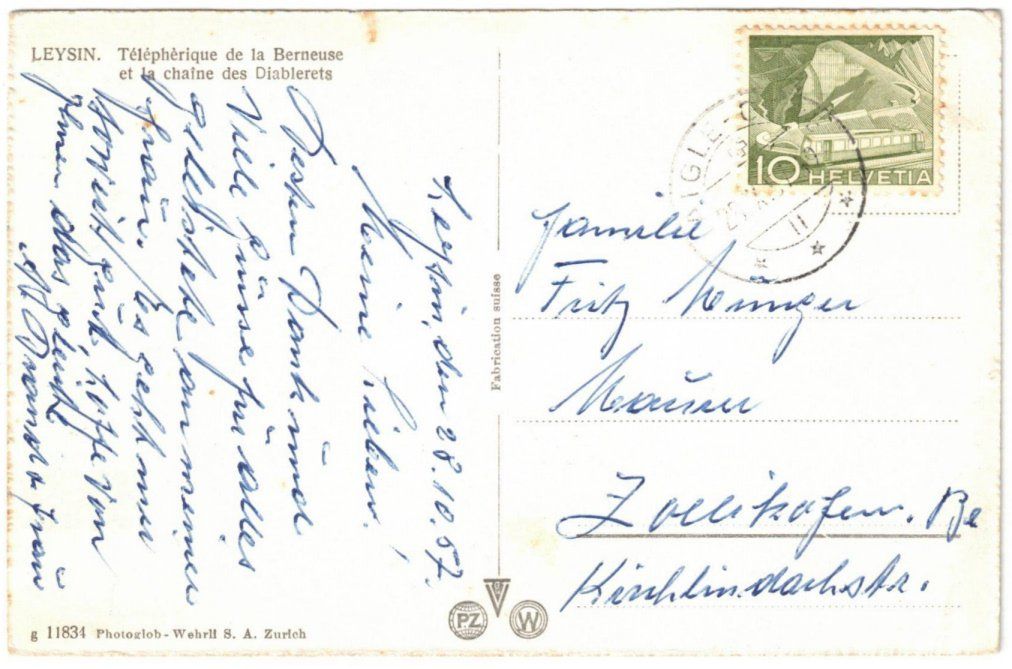 LEYSIN. Téléphèrique de la Berneuse
et la chaîne des Diablerets
Leysin, den 28.10.57.
Meine Lieben,
Besten Dank und
Viele Grüsse für alles
geleistete an meiner
Frau. Es geht mir
soweit gut, hoffe von
Ihnen das gleiche
Frau
10 HELVETIA
AIGLE
II
Familie
Fritz Munger
Maurer
Zollikofen. Be
Kirchlindachstr.
Fabrication suisse
g 11834 Photoglob-Wehrli S. A. Zurich
PZ
W